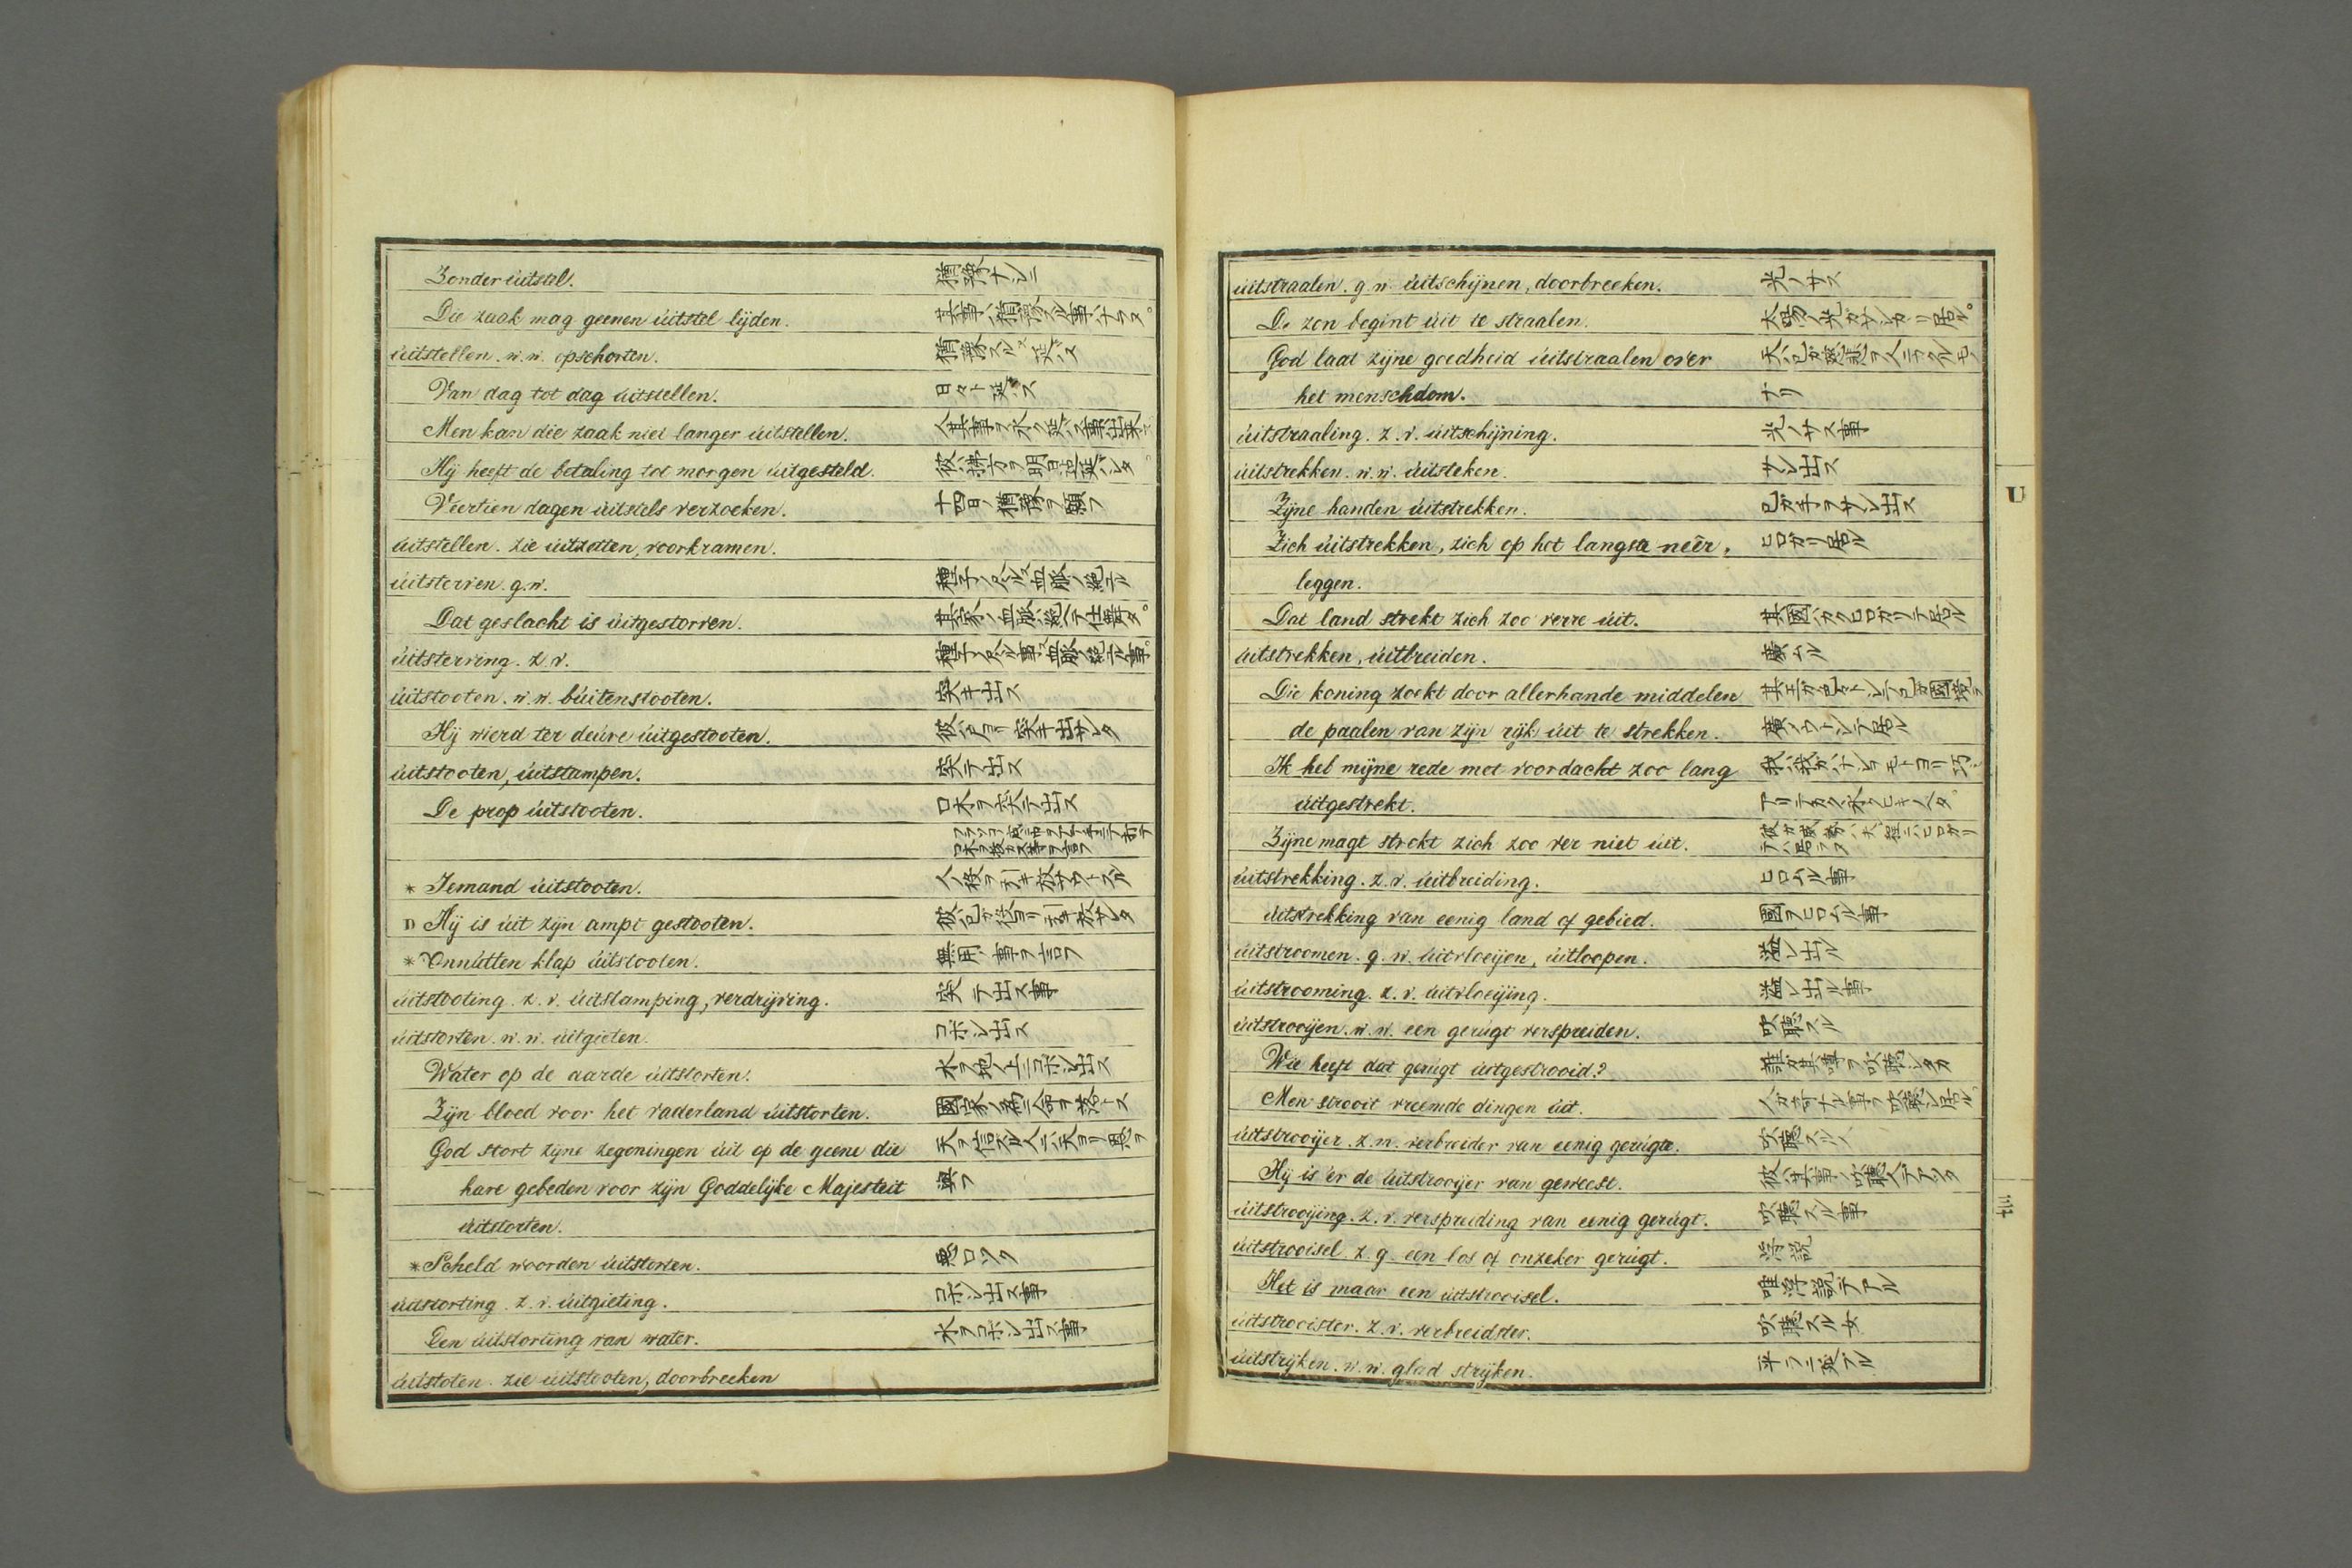 Zonder úitstel. 猶予ナシニ
Die zaak mag geenen úitstel lijden. 其事ハ猶予スル事ハナラヌ。
úitstellen. w.w. opschorten. 猶予スル 延バス
Van dag tot dag úitstellen. 日々ト延バス
Men kan die zaak niet langer úitstellen. 人其事ヲ永ク延バス事出来
Hij heeft de betaling tot morgen úitgesteld. 彼ハ拂方ヲ明日迄延バシタ
Veertien dagen úitstels verzoeken. 十四日ノ猶予ヲ願フ
úitstellen. zie úitzetten, voorkramen.
úitsterven. g.w. 種子ノ尽ル 血脈ノ絶テル
Dat geslacht is úitgestorven. 其家ノ血脈ハ絶ヘテ仕舞タ。
úitsterving. z.v. 種子ノ尽ル事 血脈ノ絶テル事。
úitstooten. w.w. búitenstooten. 突キ出ス
Hij wierd ter deúre úitgestooten. 彼ハ戸ヨリ突キ出サレタ
úitstooten, úitstampen. 突テ出ス
De prop úitstooten. 口木ヲ突テ出ス
* Iemand úitstooten. 人役ヲ引キ放サウトスル
D Hij is úit zijn ampt gestooten. 彼ハ己ガ役ヨリ引キ放サレタ
* Onnútten klap úitstooten. 無用ノ事ヲ言フ
úitstooting. z.v. úitstamping, verdrijving. 突テ出ス事
úitstorten. w.w. úitgieten. コボシ出ス
Water op de aarde úitstorten. 水ヲ地ノ上ニコボシ出ス
Zijn bloed voor het vaderland úitstorten. 國家ノ為ニ命ヲ落トス
God stort zijne zegeningen úit op de geene die 天ヲ信スル人ニハ天ヨリ恩ヲ
hare gebeden voor zijn Goddelijke Majesteit 與フ
úitstorten.
* Scheld woorden úitstorten. 悪口ツク
úitstorting. z.v. úitgieting. コボシ出ス事
Een úitstorting van water. 水ヲコボシ出ス事
úitstoten. zie úitstooten, doorbreeken
úitstraalen. g.w. úitschijnen, doorbreeken. 光ノサス
De zon begint úit te straalen. 太陽ノ光ガサシカヽリ居ル。
God laat zijne goedheid úitstraalen over
het menschdom. ナリ
úitstraaling. z.v. úitschijning. 光ノサス事
úitstrekken. w.w. úitsteken. サシ出ス
Zijne handen úitstrekken. 己ガ手ヲサシ出ス
Zich úitstrekken, zich op het langste neêr, ヒロガリ居ル
leggen.
Dat land strekt zich zoo verre úit. 其國ハカクヒロガリテ居ル
úitstrekken, úitbreiden. 廣ムル
Die koning zoekt door allerhande middelen
de paalen van zijn rijk úit te strekken. 廣メウトシテ居ル
Ik heb mijne rede met voordacht zoo lang
úitgestrekt.
Zijne magt strekt zich zoo ver niet úit. 彼ガ威勢ハ夫程ニハヒロガリテハ居ラヌ
úitstrekking. z.v. úitbreiding. ヒロムル事
úitstrekking van eenig land of gebied. 國ヲヒロムル事
úitstroomen. g.w. úitvloeijen, úitloopen. 溢レ出ル
úitstrooming. z.v. úitvloeijing. 溢レ出ル事
úitstrooijen. w.w. een gerúgt verspreiden. 吹聴スル
Wie heeft dat gerúgt úitgestrooid? 誰ガ其噂ヲ吹聴シタカ
Men strooit vreemde dingen úit. 人ガ奇ナル事ヲ吹聴シ居ル。
úitstrooijer. z.m. verbreider van eenig gerúgte. 吹聴スル人
Hij is er de úitstrooijer van geweest. 彼ハ其事ノ吹聴人テアツタ
úitstrooijing. z.v. verspreiding van eenig gerúgt. 吹聴スル事
úitstrooisel. z.g. een los of onzeker gerúgt. 浮説
Het is maar een úitstrooisel. 唯浮説デアル
úitstrooister. z.v. verbreidster. 吹聴スル女
úitstrijken. w.w. glad strijken. 平ラニ延ブル
U